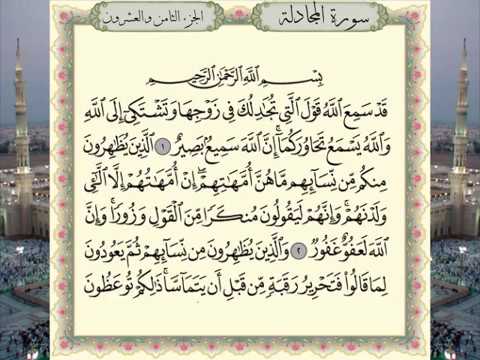 سورة المجادلة
الجزء الثامن والعشرون
بِسْمِ اللَّهِ الرَّحْمَٰنِ الرَّحِيمِ
قَدْ سَمِعَ اللَّهُ قَوْلَ الَّتِي تُجَادِلُكَ فِي زَوْجِهَا وَتَشْتَكِي إِلَى اللَّهِ
وَاللَّهُ يَسْمَعُ تَحَاوُرَكُمَا إِنَّ اللَّهَ سَمِيعٌ بَصِيرٌ ١ الَّذِينَ يُظَاهِرُونَ
مِنكُم مِّن نِّسَائِهِم مَّا هُنَّ أُمَّهَاتِهِمْ إِنْ أُمَّهَاتُهُمْ إِلَّا اللَّائِي
وَلَدْنَهُمْ وَإِنَّهُمْ لَيَقُولُونَ مُنكَرًا مِّنَ الْقَوْلِ وَزُورًا وَإِنَّ
اللَّهَ لَعَفُوٌّ غَفُورٌ ٢ وَالَّذِينَ يُظَاهِرُونَ مِن نِّسَائِهِمْ ثُمَّ يَعُودُونَ
لِمَا قَالُوا فَتَحْرِيرُ رَقَبَةٍ مِّن قَبْلِ أَن يَتَمَاسَّا ذَٰلِكُمْ تُوعَظُونَ